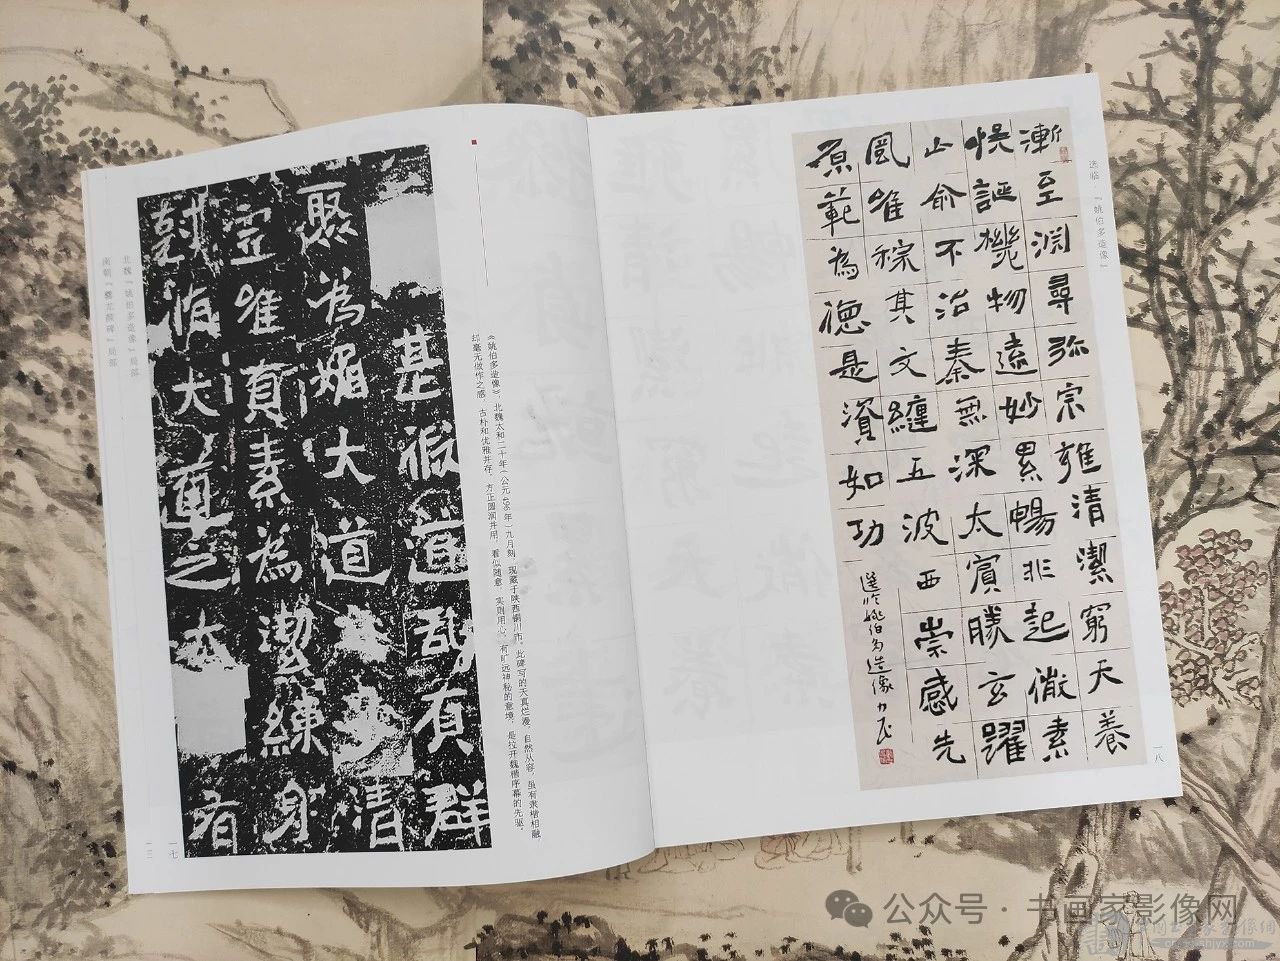 选临·『姚伯多造像』
漸至淵尋弥宗雍清潔窮天养
悮誣機物遠妙累暢非起儆素
山俞不治秦無深太賓勝玄躍
風唯綜其文纏五波西崇感先
原範為德是資如功
選临姚伯多造像
一八
《姚伯多造像》，北魏太和二十年（公元496年）九月刻，现藏于陕西铜川市，此碑写的天真烂漫，自然从容，虽有隶楷相融，
却毫无做作之感，古朴和优雅并存，方正圆润并用，看似随意，实则用心，有旷远神秘的意境，是拉开魏楷序幕的先驱。
甚假道教有群
聚为媚大道
清
虚唯真素為潔練身
大道之大
有
北魏『姚伯多造像』局部
南朝『爨龙颜碑』局部
一七
公众号·书画家影像网